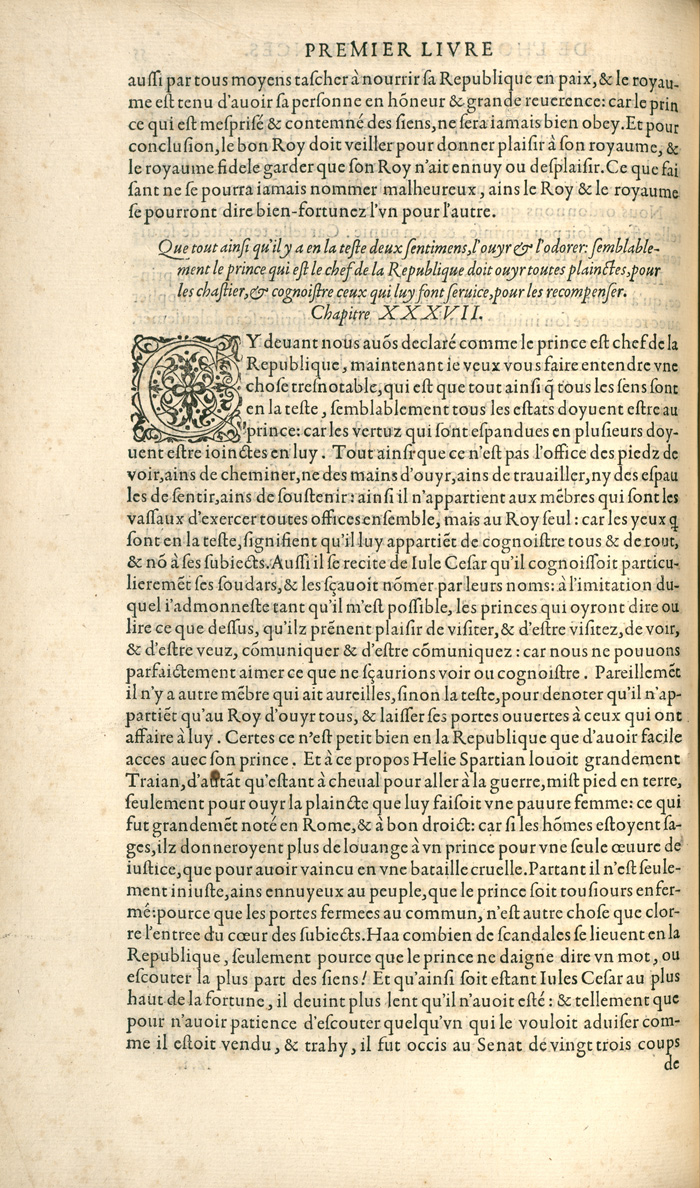 PREMIER LIVRE
auſſi par tous moyens taſcher à nourrir ſa Republique en paix, & le royau-
me eſt tenu d'auoir ſa perſonne en hõneur & grande reuerence: car le prin
ce qui eſt meſpriſé & contemné des ſiens, ne ſera iamais bien obey. Et pour
concluſion, le bon Roy doit veiller pour donner plaiſir à ſon royaume, &
le royaume fidele garder que ſon Roy n'ait ennuy ou deſplaiſir. Ce que fai
ſant ne ſe pourra iamais nommer malheureux, ains le Roy & le royaume
ſe pourront dire bien-fortunez l'vn pour l'autre.
Que tout ainſi qu'il y a en la teſte deux ſentimens, l'ouyr & l'odorer: ſemblable-
ment le prince qui eſt le chef de la Republique doit ouyr toutes plainctes, pour
les chaſtier, & cognoiſtre ceux qui luy font ſeruice, pour les recompenſer.
Chapitre XXXVII.
CY deuant nous auõs declaré comme le prince eſt chef de la
Republique, maintenant ie veux vous faire entendre vne
choſe treſnotable, qui eſt que tout ainſi q̃ tous les ſens ſont
en la teſte, ſemblablement tous les eſtats doyuent eſtre au
prince: car les vertuz qui ſont eſpandues en pluſieurs doy-
uent eſtre ioinctes en luy. Tout ainſi que ce n'eſt pas l'office des piedz de
voir, ains de cheminer, ne des mains d'ouyr, ains de trauailler, ny des eſpau
les de ſentir, ains de ſouſtenir: ainſi il n'appartient aux mẽbres qui ſont les
vaſſaux d'exercer toutes offices enſemble, mais au Roy ſeul: car les yeux q̃
ſont en la teſte, ſignifient qu'il luy appartiẽt de cognoiſtre tous & de tout,
& nõ à ſes ſubiects. Auſſi il ſe recite de Iule Ceſar qu'il cognoiſſoit particu-
lieremẽt ſes ſoudars, & les ſçauoit nõmer par leurs noms: à l'imitation du-
quel i'admonneſte tant qu'il m'eſt poſſible, les princes qui oyront dire ou
lire ce que deſſus, qu'ilz prẽnent plaiſir de viſiter, & d'eſtre viſitez, de voir,
& d'eſtre veuz, cõmuniquer & d'eſtre cõmuniquez: car nous ne pouuons
parfaictement aimer ce que ne ſçaurions voir ou cognoiſtre. Pareillemẽt
il n'y a autre mẽbre qui ait aureilles, ſinon la teſte, pour denoter qu'il n'ap-
partiẽt qu'au Roy d'ouyr tous, & laiſſer ſes portes ouuertes à ceux qui ont
affaire à luy. Certes ce n'eſt petit bien en la Republique que d'auoir facile
acces auec ſon prince. Et à ce propos Helie Spartian louoit grandement
Traian, d'autãt qu'eſtant à cheual pour aller à la guerre, miſt pied en terre,
ſeulement pour ouyr la plaincte que luy faiſoit vne pauure femme: ce qui
fut grandemẽt noté en Rome, & à bon droict: car ſi les hõmes eſtoyent ſa-
ges, ilz donneroyent plus de louange à vn prince pour vne ſeule œuure de
iuſtice, que pour auoir vaincu en vne bataille cruelle. Partant il n'eſt ſeule-
ment iniuſte, ains ennuyeux au peuple, que le prince ſoit touſiours enfer-
mé: pource que les portes fermees au commun, n'eſt autre choſe que clor-
re l'entree du cœur des ſubiects. Haa combien de ſcandales ſe lieuent en la
Republique, ſeulement pource que le prince ne daigne dire vn mot, ou
eſcouter la plus part des ſiens! Et qu'ainſi ſoit eſtant Iules Ceſar au plus
haut de la fortune, il deuint plus lent qu'il n'auoit eſté: & tellement que
pour n'auoir patience d'eſcouter quelqu'vn qui le vouloit aduiſer com-
me il eſtoit vendu, & trahy, il fut occis au Senat de vingt trois coups
de